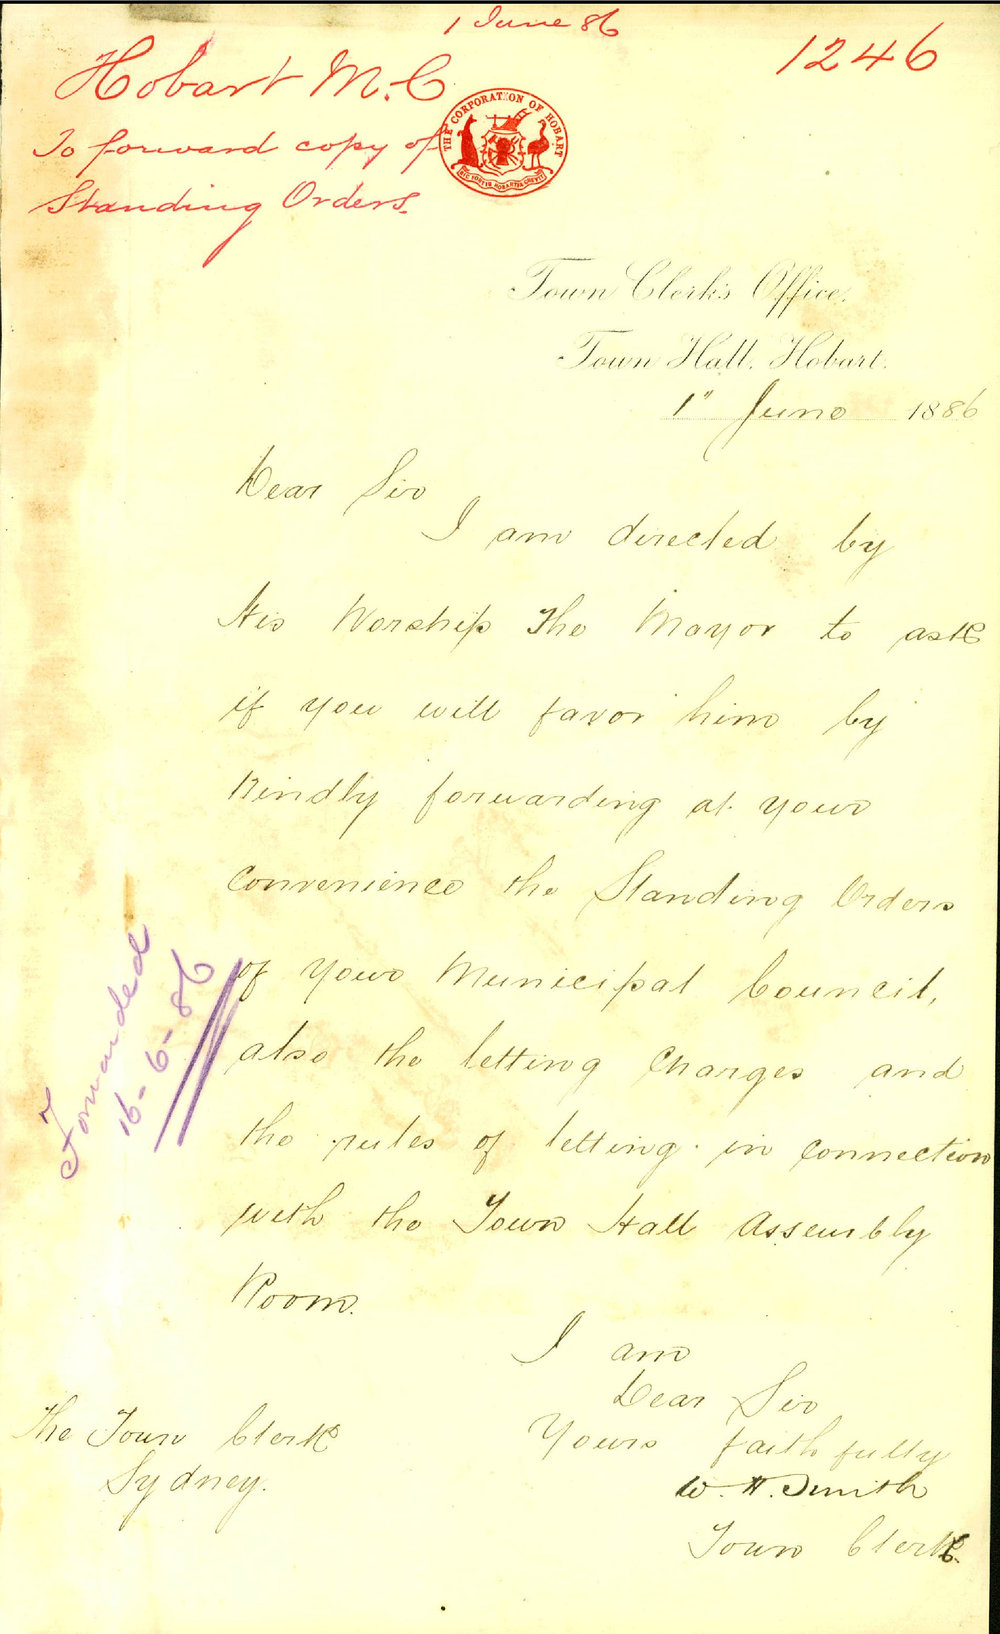 1 June 86
1246
Hobart M.C
To forward copy of
Standing Orders.
THE CORPORATION OF HOBART
Town Clerk's Office,
Town Hall, Hobart.
1" June 1886
Dear Sir
I am directed by
His Worship The Mayor to ask
if you will favor him by
Kindly forwarding at your
Convenience the Standing Orders
of your Municipal Council,
also the letting Charges and
the rules of letting in connection
with the Town Hall Assembly
Room.
Forwarded
16-6-86
I am
Dear Sir
Yours faithfully
W. H. Smith
Town Clerk
The Town Clerk
Sydney.